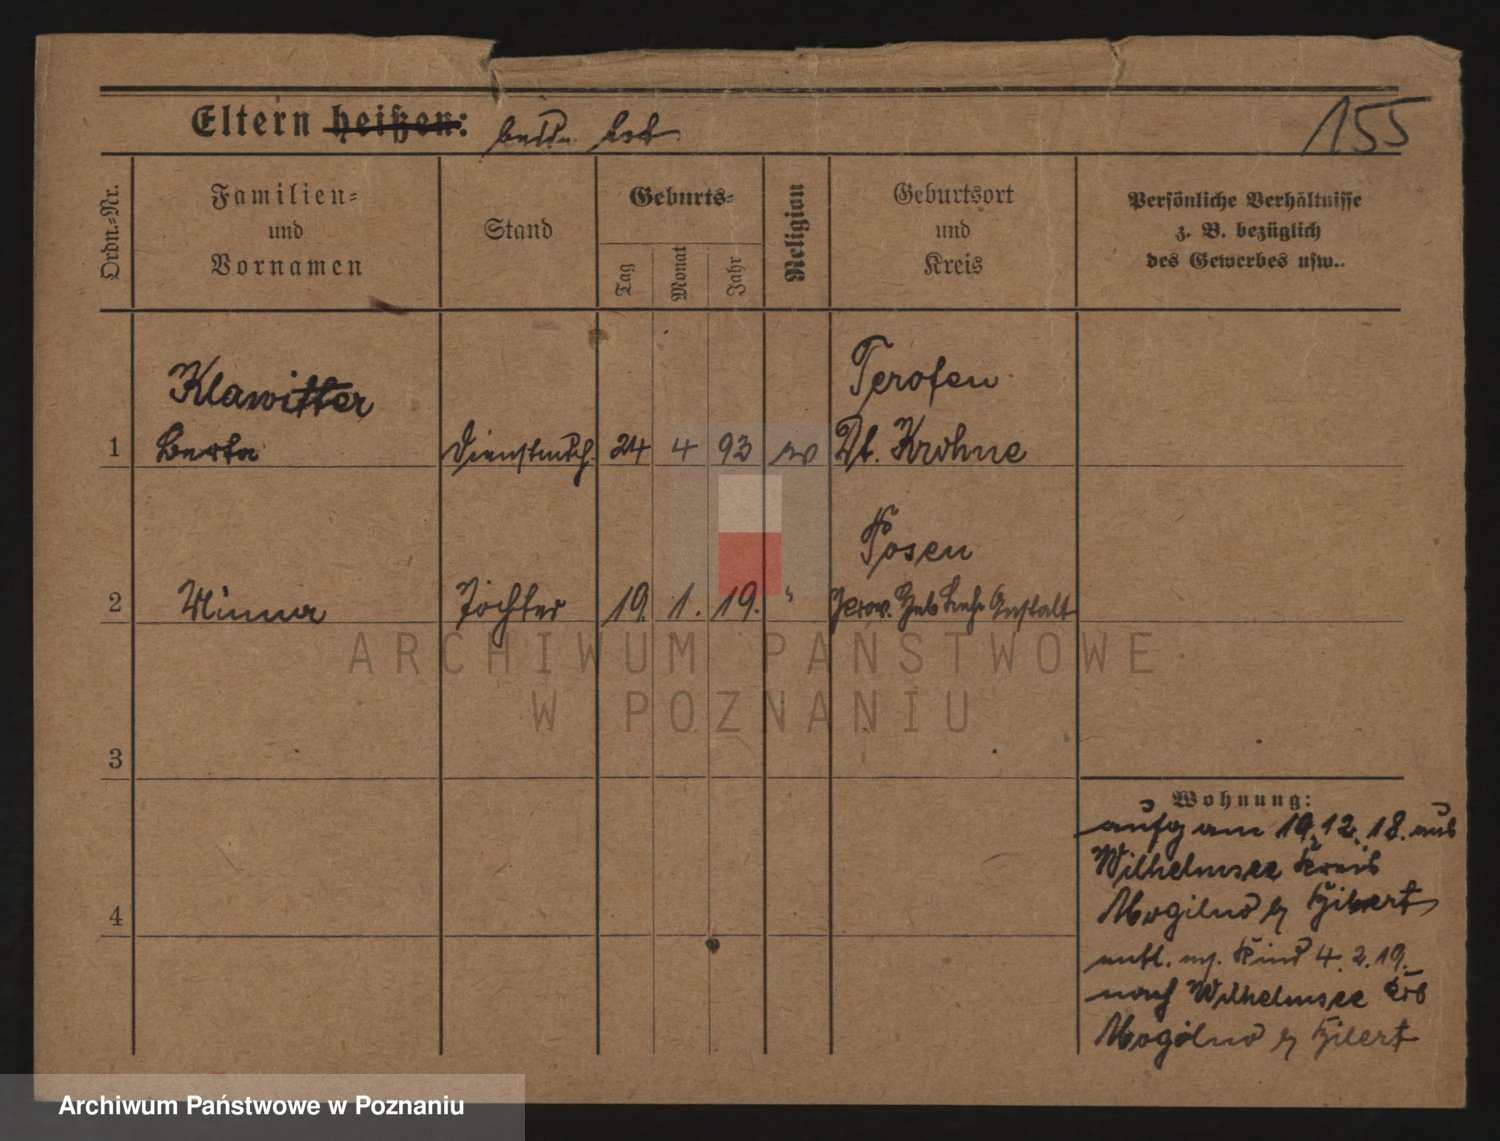 Eltern heißen: beide tot
155
Ordn.-Nr.
Familien-
und
Vornamen
Stand
Geburts-
Tag
Monat
Jahr
Religion
Geburtsort
und
Kreis
Persönliche Verhältnisse
z. B. bezüglich
des Gewerbes usw..
Klawitter
Berta
1
Dienstmdch.
24
4
93
ev
Terofen
Dt. Krohne
2
Minna
Tochter
19.
1.
19.
"
Posen
Prov. Heb Lehr Anstalt
3
4
Wohnung:
aufg am 19.12.18. aus
Wilhelmsee Kreis
Mogilno
entl. m. Kind 4.2.19.
nach Wilhelmsee Krs
Mogilno
ARCHIWUM PAŃSTWOWE
W POZNANIU
Archiwum Państwowe w Poznaniu